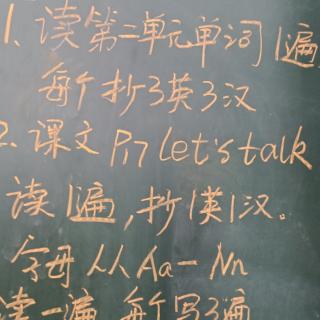 1、读第二单元单词1遍
每个抄3英3汉
2、课文 P17 Let's talk
读1遍,抄1英1汉。
字母从Aa-Nn
读一遍 每个写3遍